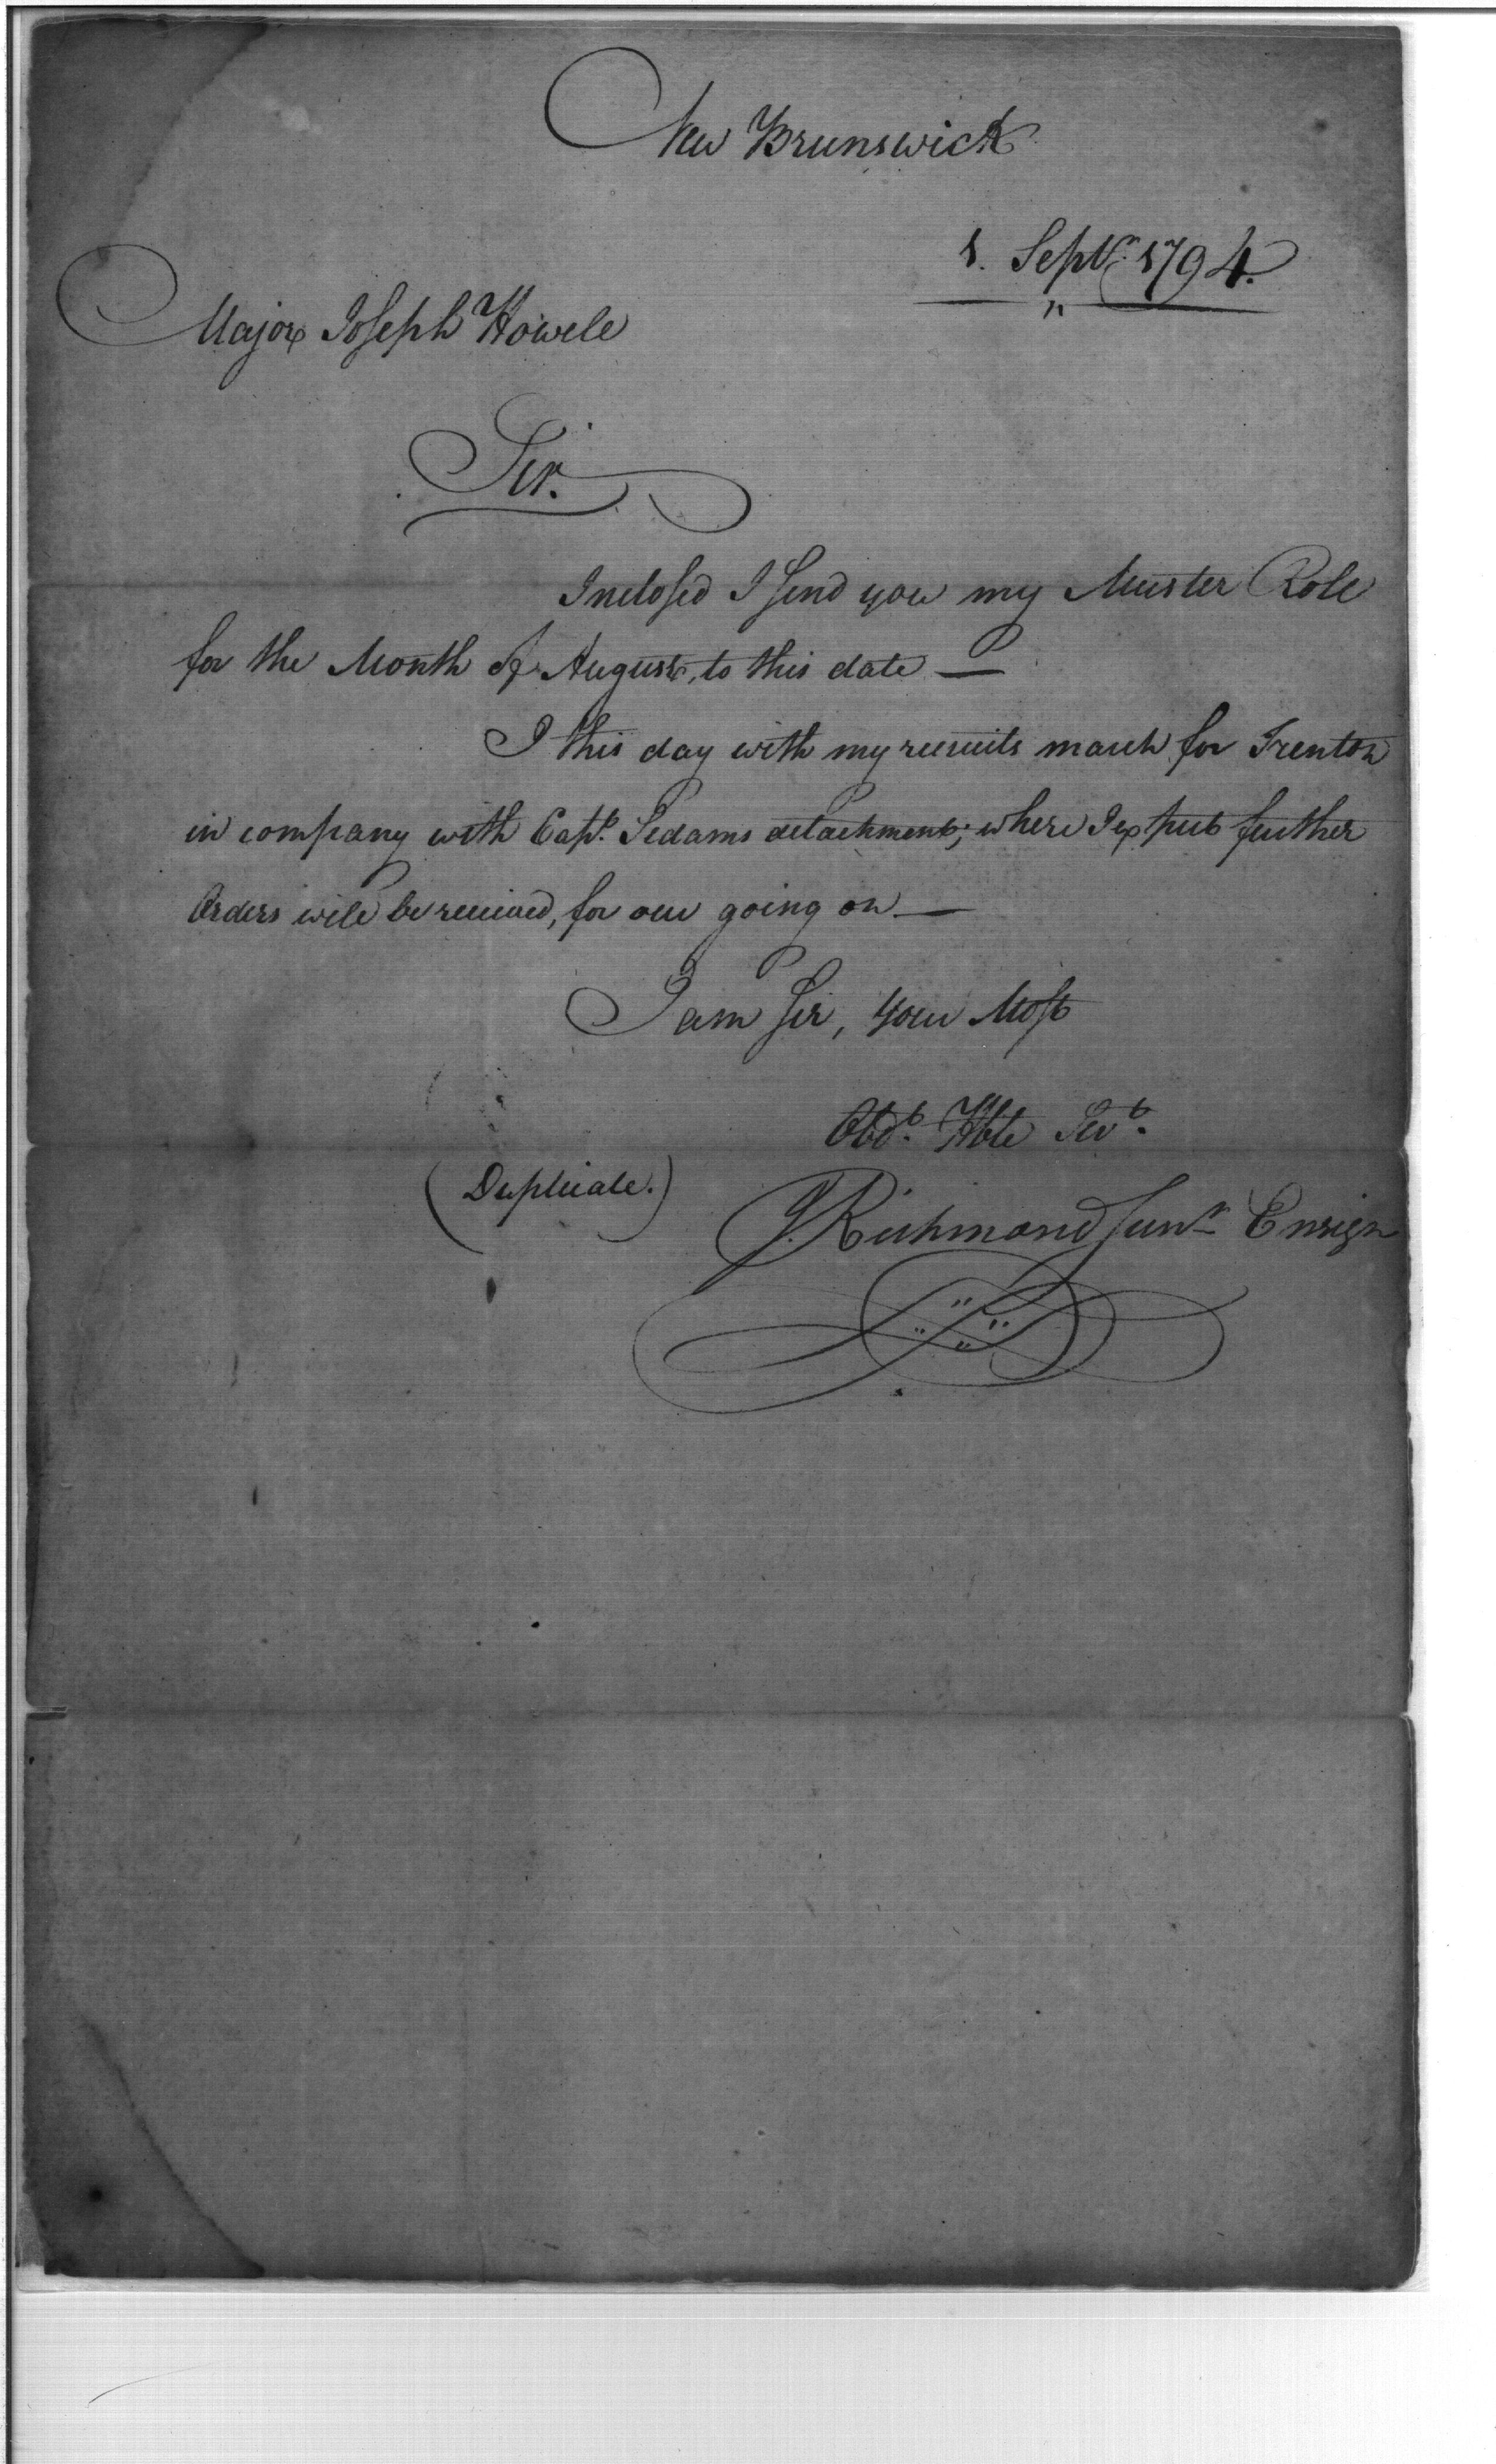 New Brunswick
1. Septr. 1794.
Major Joseph Howell
Sir.
Inclosed I send you my Muster Roll
for the Month of August, to this date —
I this day with my recruits march for Trenton
in company with Capt. Sedams detachment; where I expect further
Orders will be received, for our going on —
I am Sir, your Most
Obdt. Hble Servt.
(Duplicate.)
J. Richmond Junr Ensign